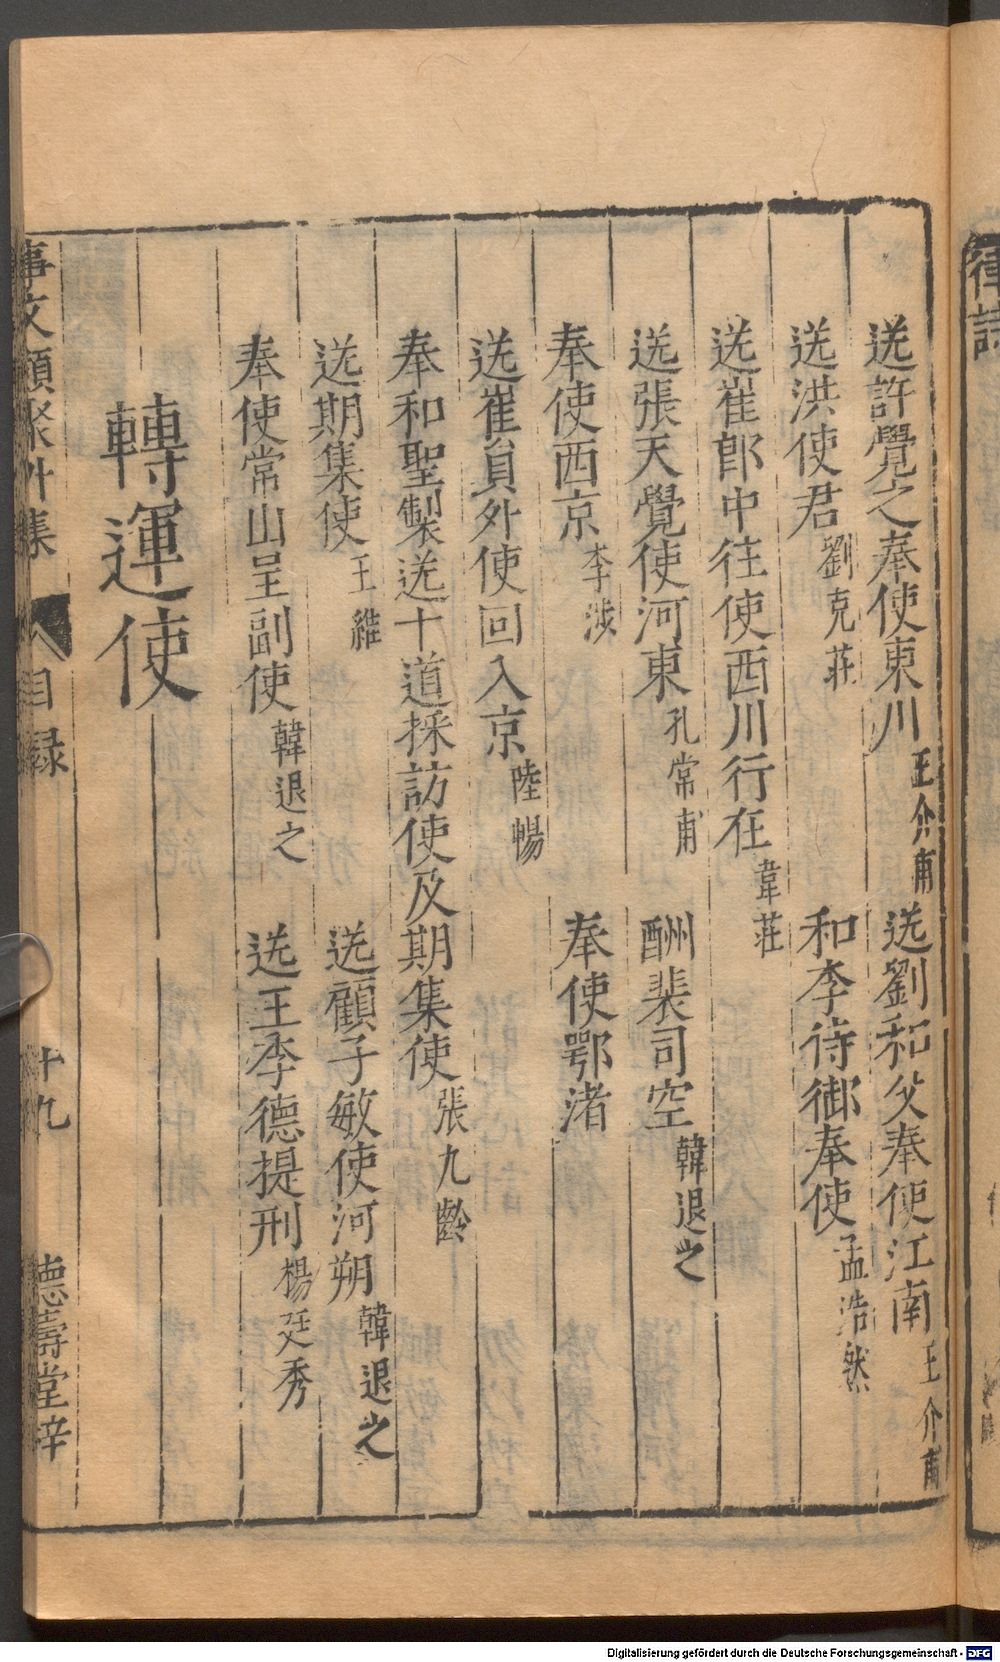 送許覺之奉使東川 王介甫 送劉和父奉使江南 王介甫
送洪使君 劉克莊 和李侍御奉使 孟浩然
送崔郎中往使西川行在 韋莊
送張天覺使河東 孔常甫 酬裴司空 韓退之
奉使西京 李涉 奉使鄂渚
送崔員外使回入京 陸暢
奉和聖製送十道採訪使及期集使 張九齡
送期集使 王維 送顧子敏使河朔 韓退之
奉使常山呈副使 韓退之 送王李德提刑 楊廷秀
轉運使
事文類聚外集 目録 十九 德壽堂梓
律詩
Digitalisierung gefördert durch die Deutsche Forschungsgemeinschaft - DFG